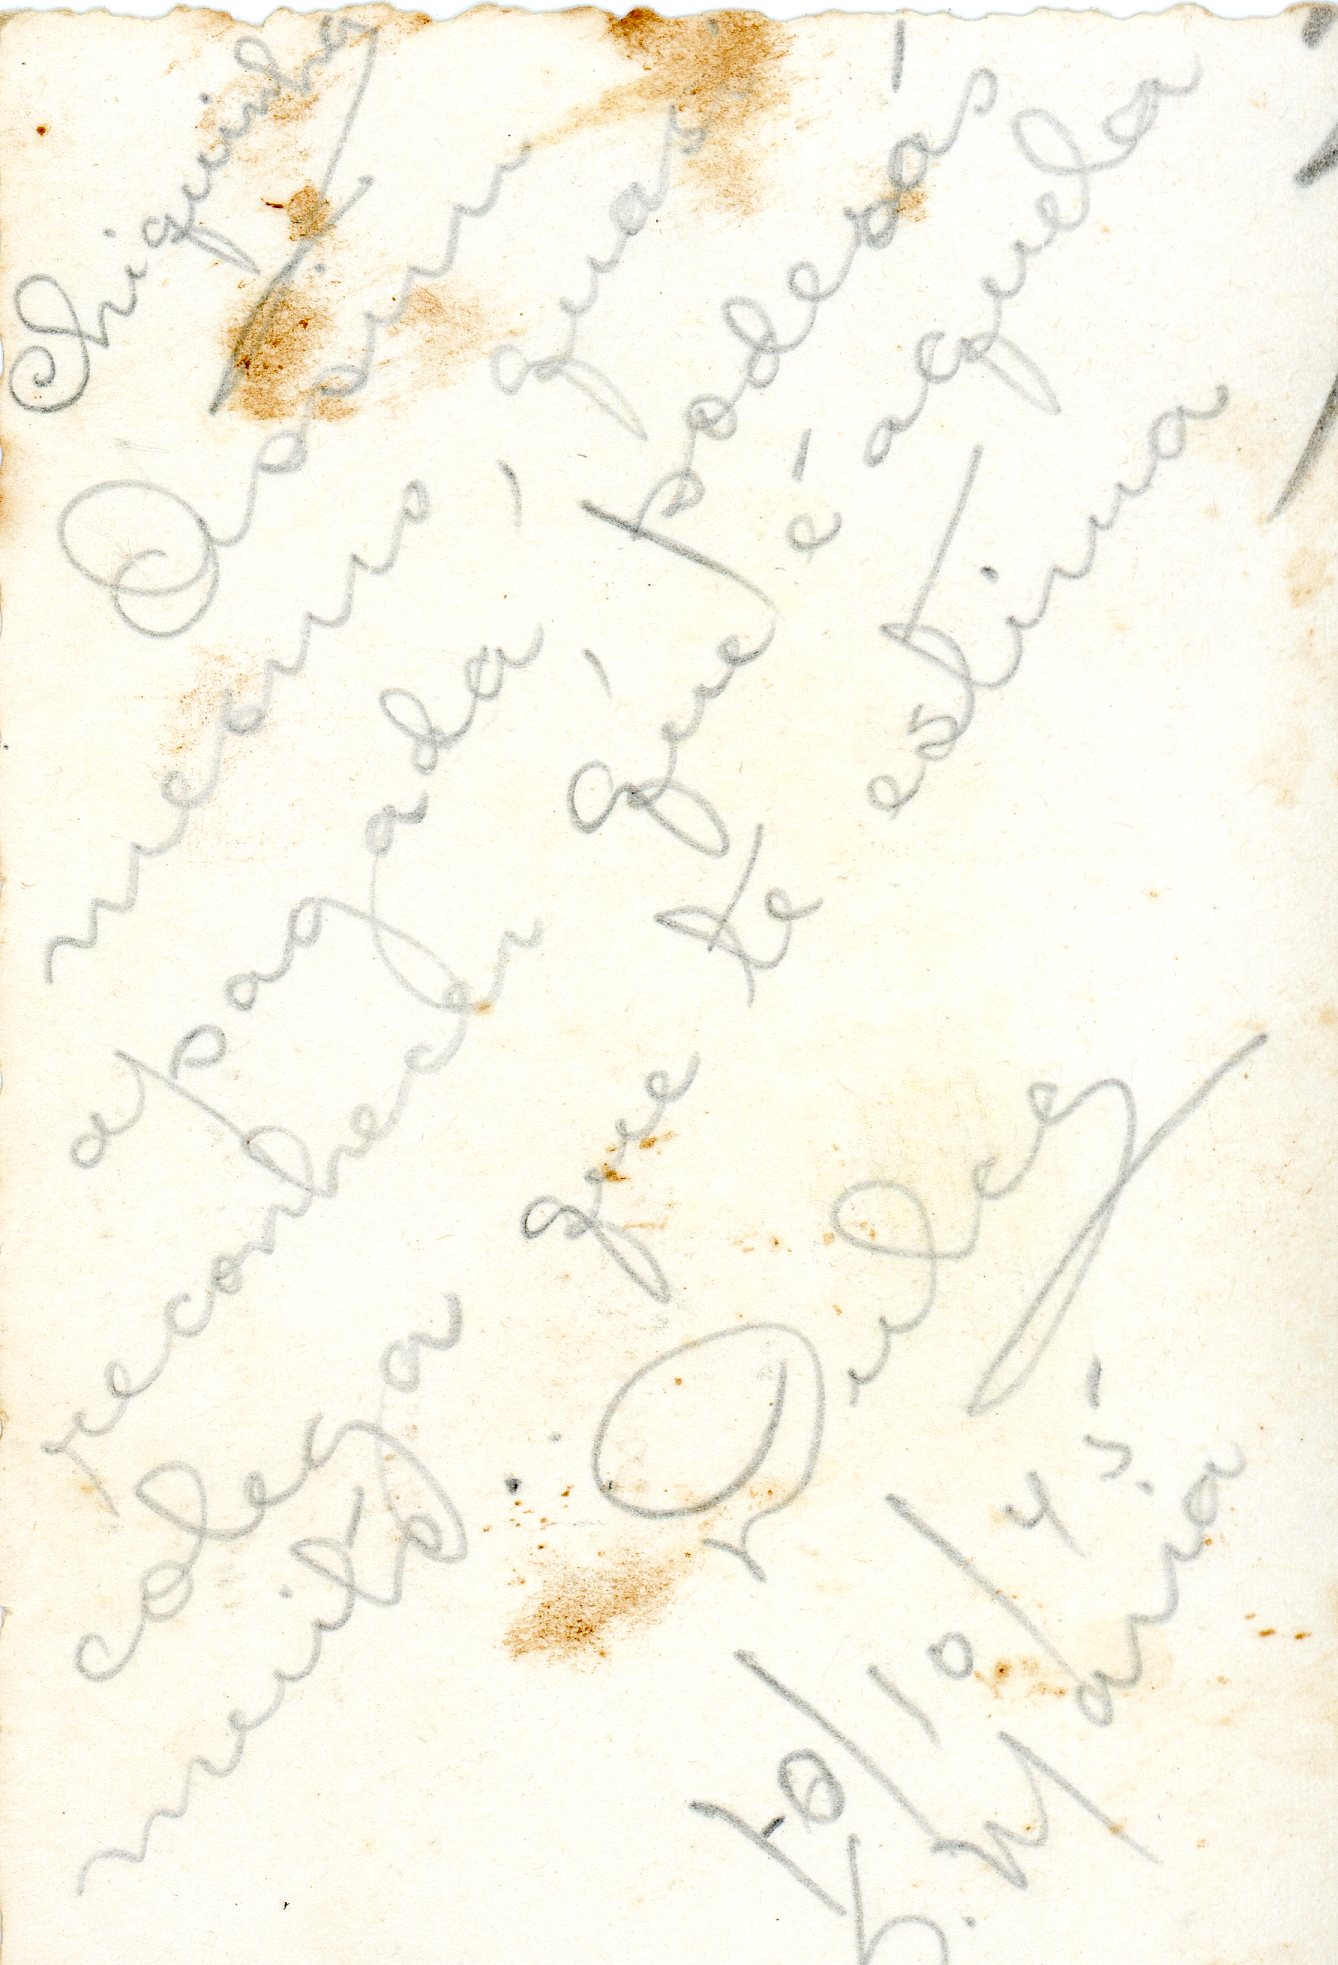 Chiquinha
Assim
mesmo, quasi
apagada, poderás
reconhecer que é aquela
colega que te estima
muito.
Dulce
10/10/45
S. Maria